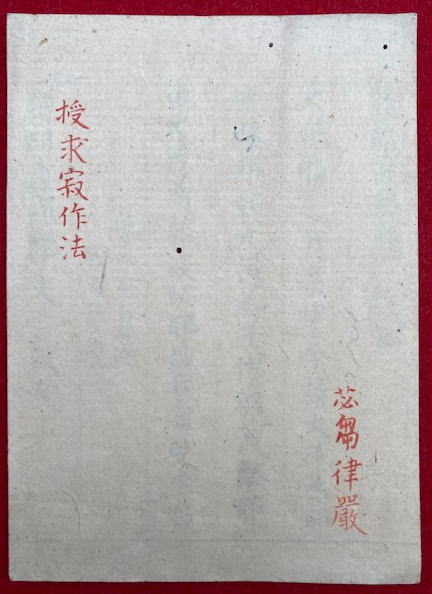 授求寂作法
苾芻律嚴